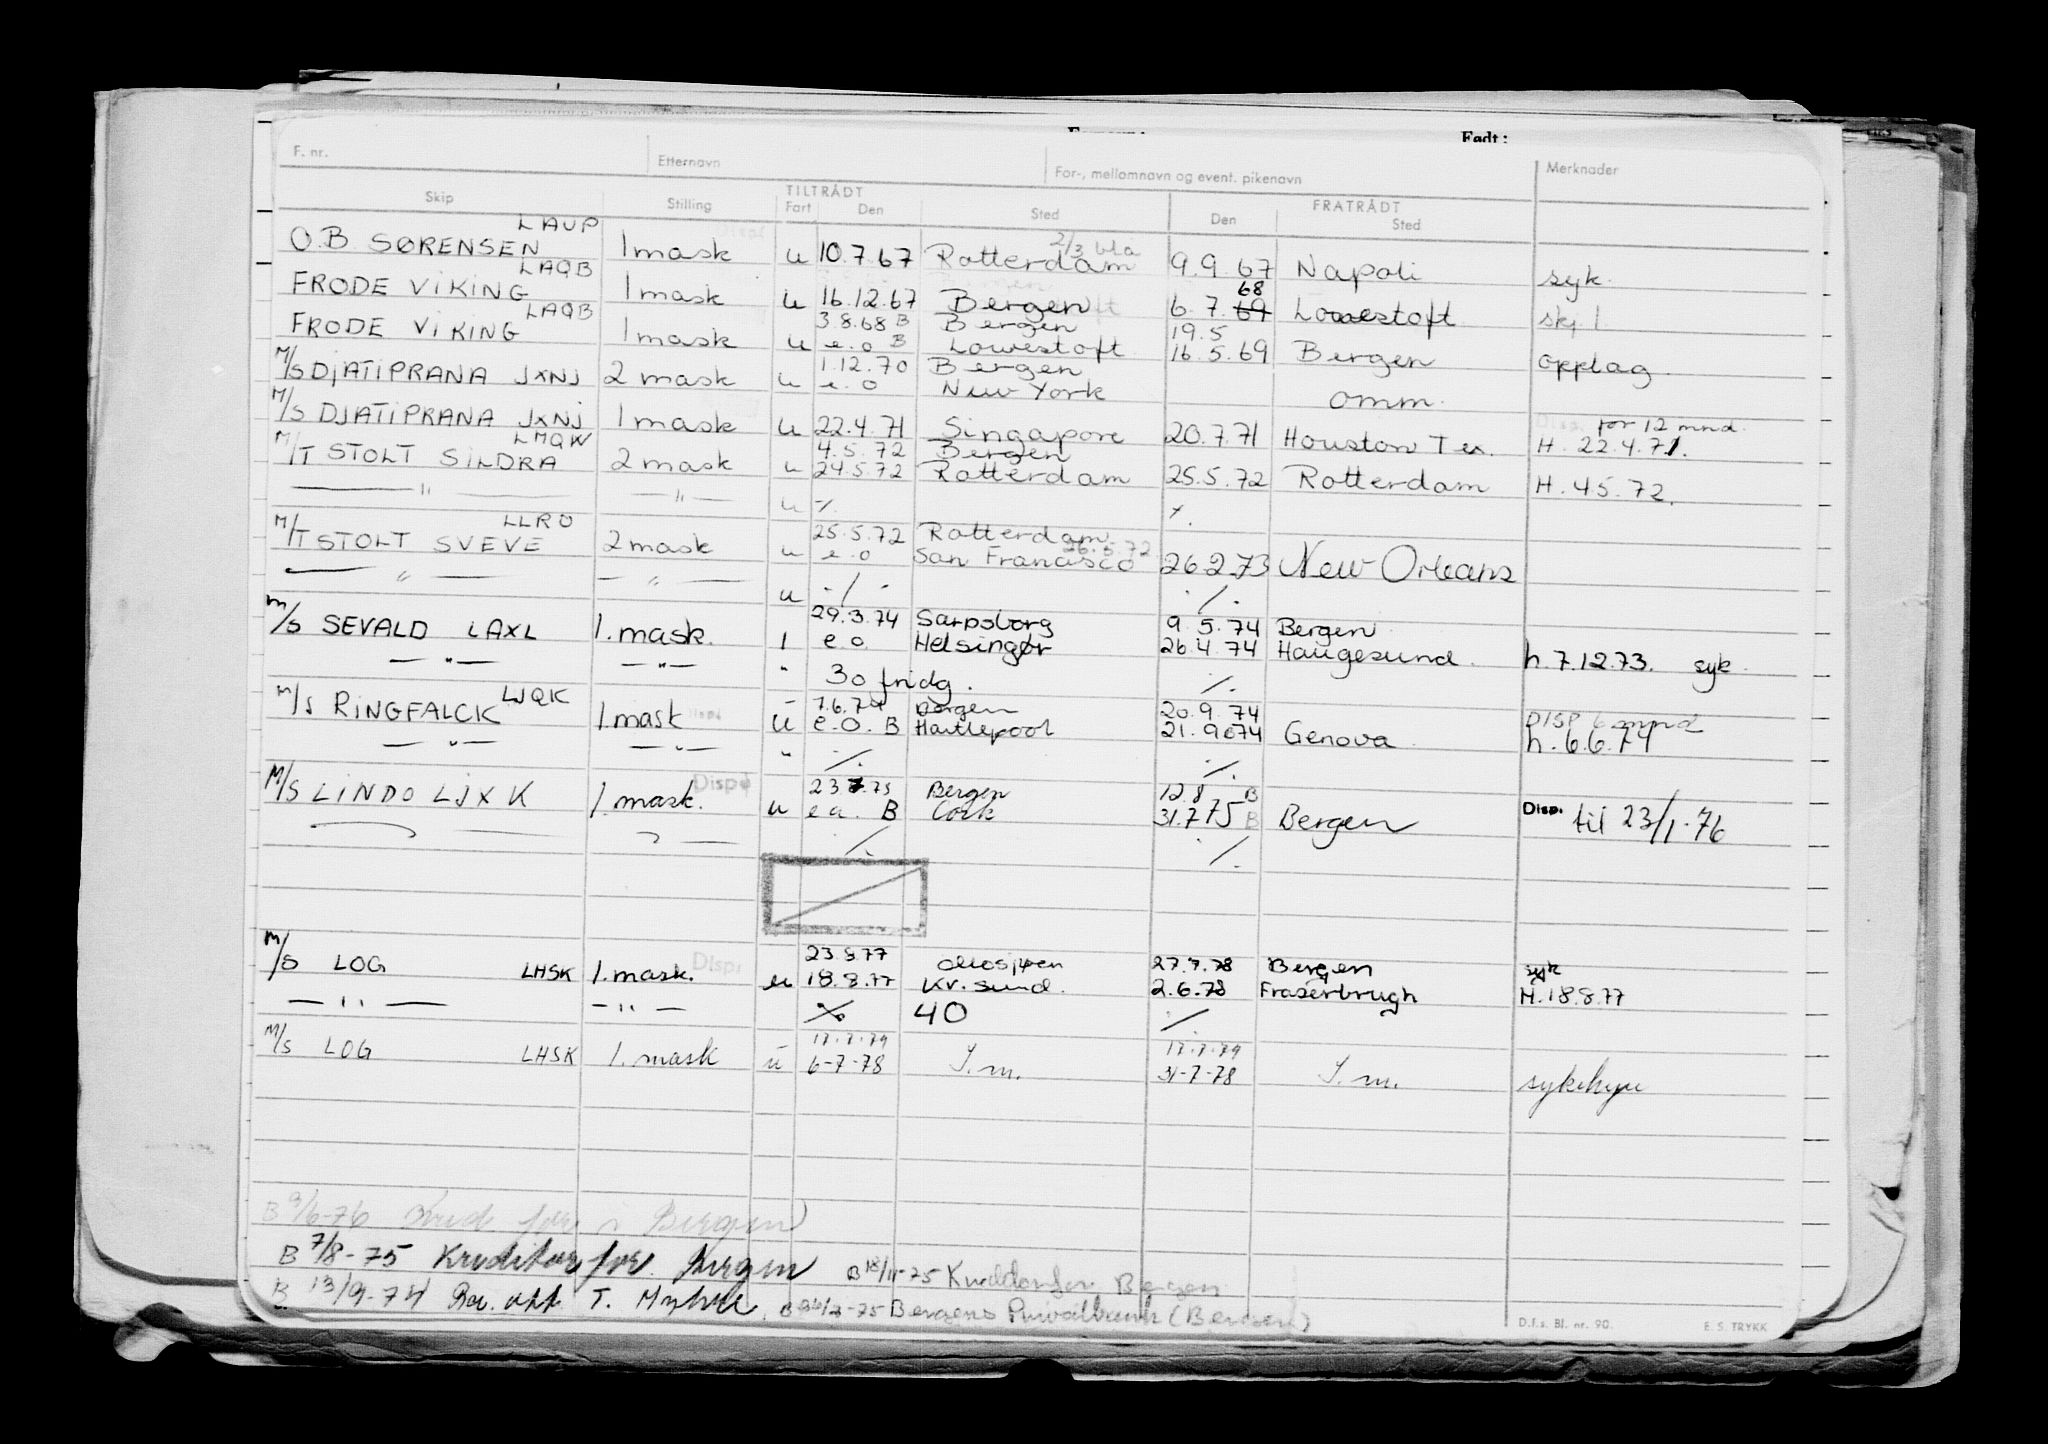 Født:
F. nr. Etternavn For-, mellomnavn og event. pikenavn Merknader
TILTRÅDT FRATRÅDT
Skip Stilling Fart Den Sted Den Sted
LAUP
O.B. SØRENSEN 1 mask u 10.7.67 Rotterdam 2/3 bla 9.9.67 Napoli syk.
LAQB
FRODE VIKING 1 mask u 16.12.67 Bergen 6.7.69 68 Lowestoft skj 1
LAQB 3.8.68 B Bergen 19.5
FRODE VIKING 1 mask u e.o B Lowestoft 16.5.69 Bergen opplag.
1.12.70 Bergen
M/S DJATIPRANA JXNJ 2 mask u e.o New York omm.
for 12 mnd.
M/S DJATIPRANA JXNJ 1 mask u 22.4.71 Singapore 20.7.71 Houston Tex. H. 22.4.71.
LMQW 4.5.72 Bergen
M/T STOLT SILDRA 2 mask u 24.5.72 Rotterdam 25.5.72 Rotterdam H. 4.5.72.
— " — — " — u ./. ./.
LLRO 25.5.72 Rotterdam
M/T STOLT SVEVE 2 mask u e.o San Francisco 26.5.72 26.2.73 New Orleans
— " — — " — u ./. ./.
29.3.74 Sarpsborg 9.5.74 Bergen
M/S SEVALD LAXL 1. mask. 1 e.o. Helsingør 26.4.74 Haugesund. h. 7.12.73. syk.
— " — — " — " 30 fridg. ./.
LJQK 7.6.74 Bergen 20.9.74 DISP 6 mnd
M/S RINGFALCK 1. mask u e.o. B Hartlepool 21.9.74 Genova h. 6.6.74
— " — — " — " ./. ./.
Dispo 23.7.75 Bergen 12.8 B
M/S LINDO LJXK 1. mask. u e.o. B Cork 31.7.75 B Bergen Disp. til 23/1-76
./. ./.
Disp. 23.8.77 27.7.78 Bergen syk
M/S LOG LHSK 1. mask. u 18.8.77 Kr.sund. 2.6.78 Fraserbrugh H. 18.8.77
— " — — " — ./. 40 ./.
17.7.79 17.7.79
M/S LOG LHSK 1. mask u 6-7-78 S.m. 31-7-78 S.m. sykehyre
B 9/6-76 Kred for i Bergen
B 7/8-75 Kreditorfor. Bergen B 18/11-75 Kreditorfor Bergen
B 13/9-74 T. B -75 Bergens Privatbank (Bergen)
D.f.s. Bl. nr. 90. E. S. TRYKK